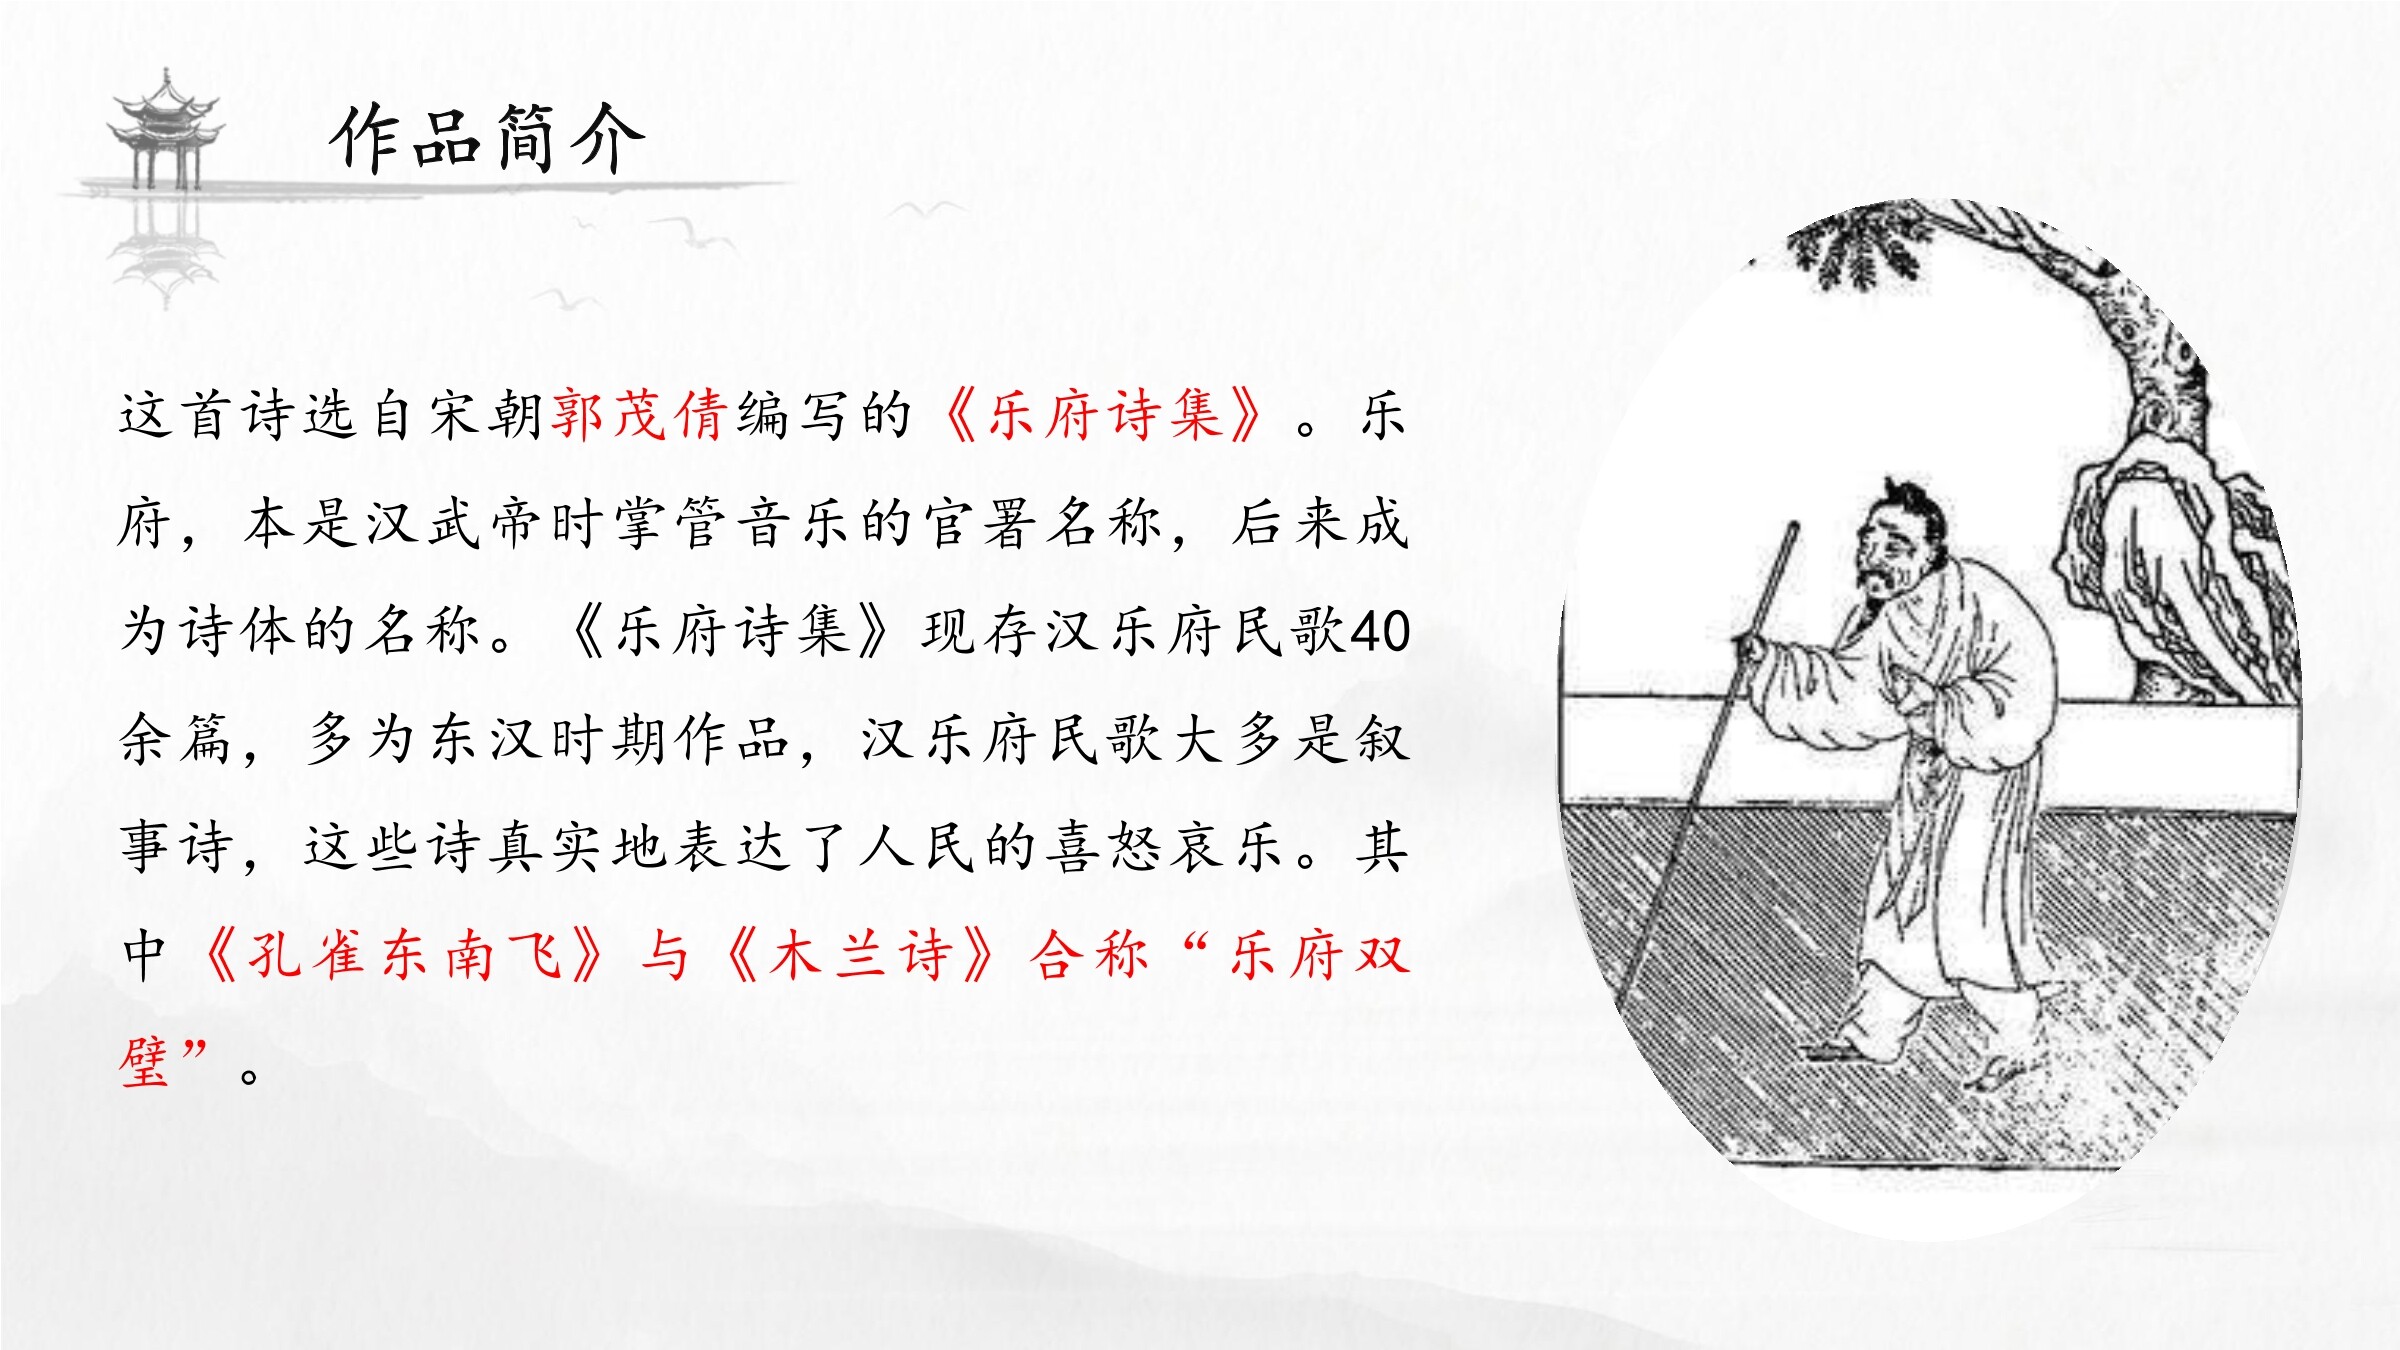 作品简介
这首诗选自宋朝郭茂倩编写的《乐府诗集》。乐
府，本是汉武帝时掌管音乐的官署名称，后来成
为诗体的名称。《乐府诗集》现存汉乐府民歌40
余篇，多为东汉时期作品，汉乐府民歌大多是叙
事诗，这些诗真实地表达了人民的喜怒哀乐。其
中《孔雀东南飞》与《木兰诗》合称“乐府双
璧”。